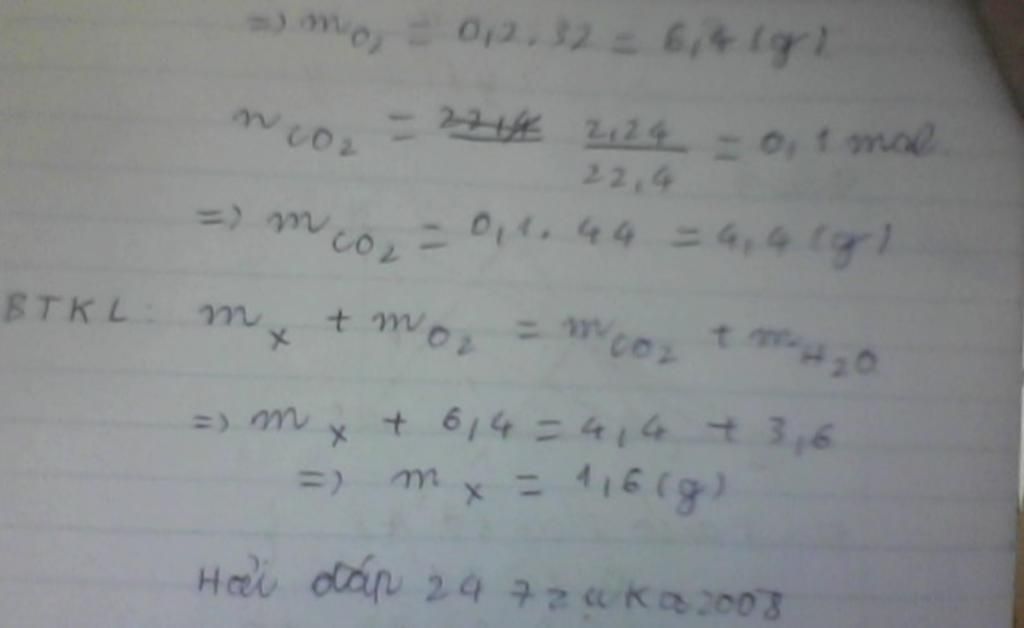 => mO2 = 0,2.32 = 6,4 (g)
nCO2 = 22,4 2,24/22,4 = 0,1 mol
=> mCO2 = 0,1.44 = 4,4 (g)
BTKL: mx + mO2 = mCO2 + mH2O
=> mx + 6,4 = 4,4 + 3,6
=> mx = 1,6 (g)
Hỏi đáp 247